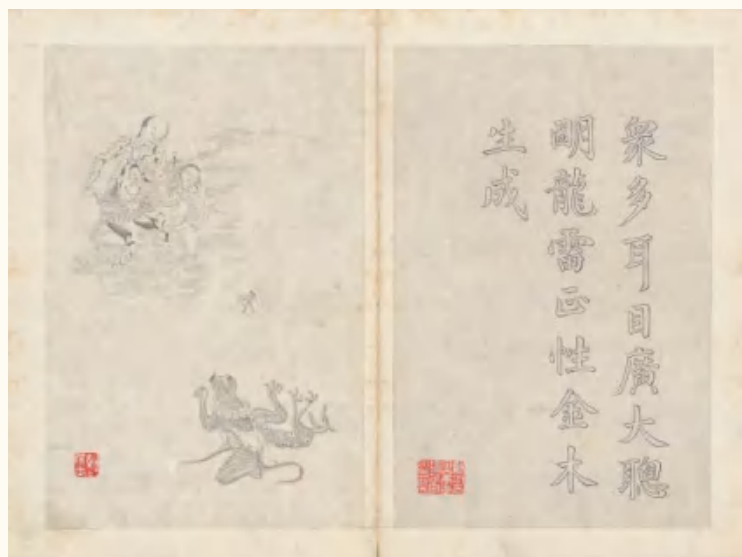 衆多耳目廣大聰
明龍雷正性金木
生成